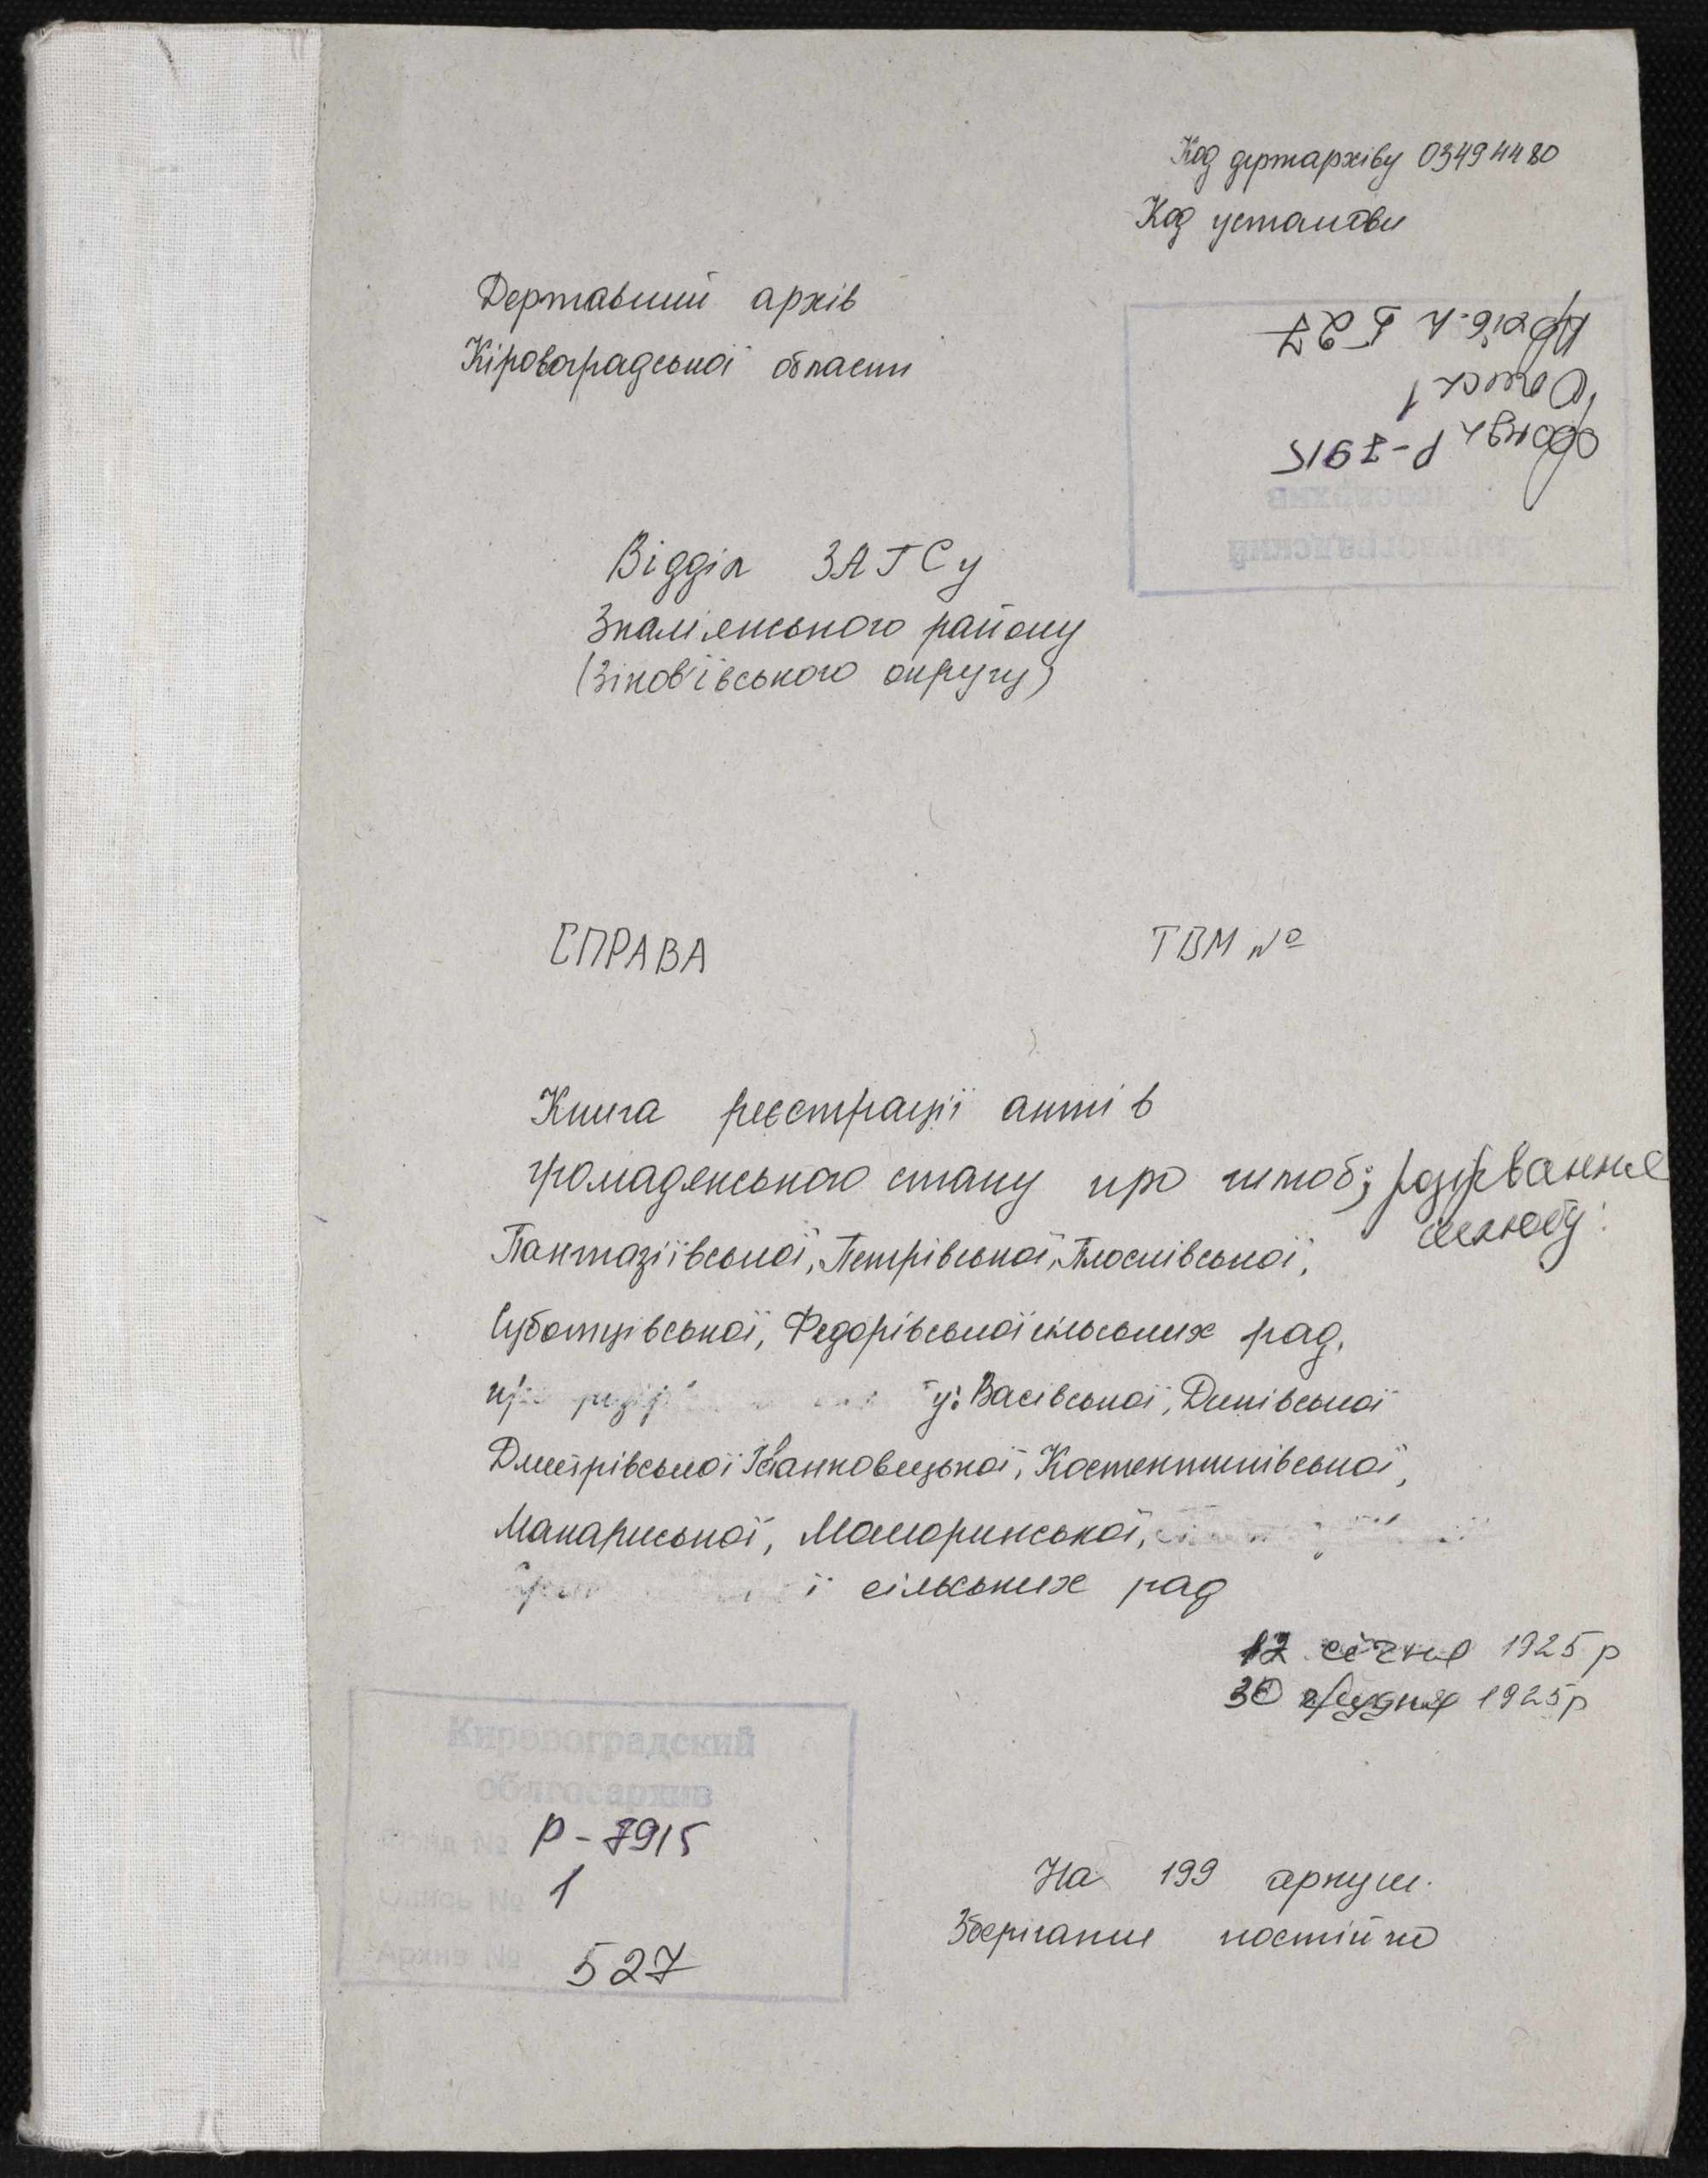 Код держархіву 03494480
Код установи
Державний архів
Кіровоградської області
Архів. № 527
Опись 1
Фонд № Р-7915
Відділ ЗАГСу
Знам'янського району
(Зінов'ївського округу)
СПРАВА ТОМ №
Книга реєстрації актів
громадянського стану про шлюб; розірвання
шлюбу:
Пантазіївської, Петрівської, Плосківської,
Суботцівської, Федорівської сільських рад,
у: Васівської, Диківської
Дмитрівської Іванковецької, Костянтинівської,
Макариської, Мошоринської,
ї сільських рад
12 січня 1925 р
30 грудня 1925 р
Кировоградский
облгосархив
Фонд № Р-7915
Опись № 1
Архив № 527
На 199 аркуш.
Зберігання постійно